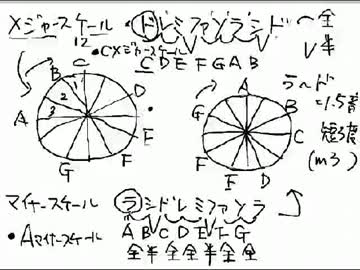 メジャースケール
・ドレミファソラシド
⌒全
∨半
12
・Cメジャースケール
C D E F G A B
C
B
1
2
3
A
D
E
F
F
G
A
G
B
C
D
E
F
ラ〜ド
=1.5音
短3度
(m3)
マイナースケール
ラシドレミファソラ
・Aマイナースケール
A B C D E F G
全半全全半全全